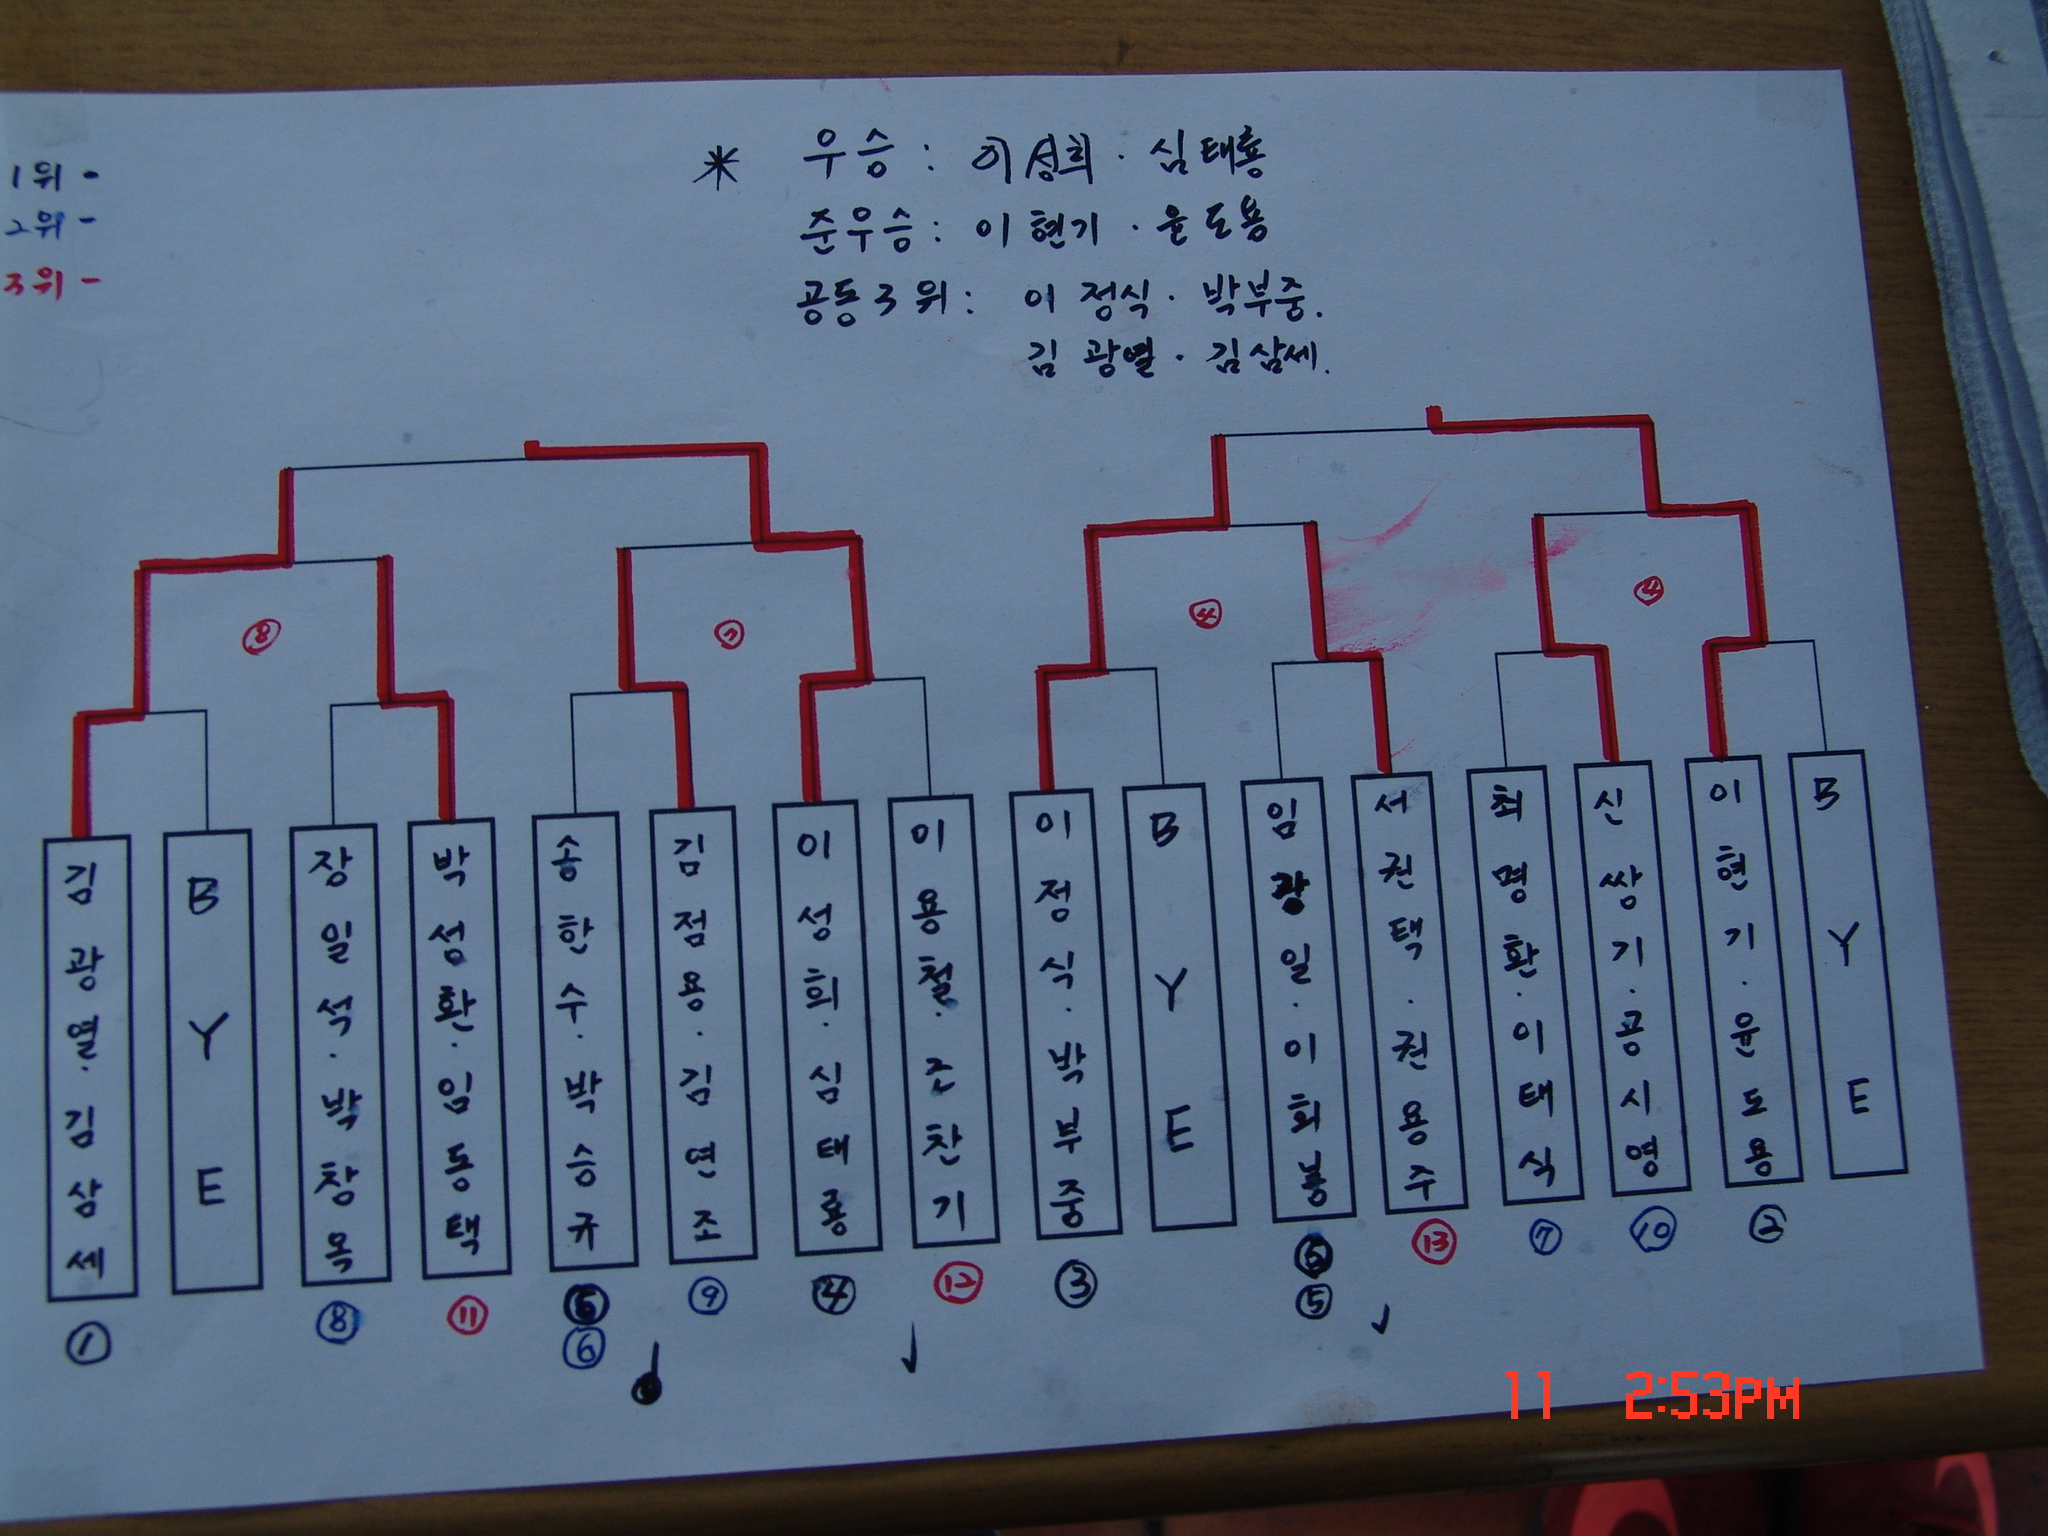 1위 -
2위 -
3위 -
* 우승 : 이성희 · 심태룡
준우승 : 이현기 · 윤도용
공동3위 : 이정식 · 박부중.
김광열 · 김삼세.
⑧
⑦
④
④
김광열·김삼세
BYE
장일석·박창옥
박성환·임동택
송한수·박승규
김점용·김연조
이성희·심태룡
이용철·조찬기
이정식·박부중
BYE
임광일·이회봉
서권택·권용주
최명환·이태식
신쌍기·공시영
이현기·윤도용
BYE
①
⑧
⑪
⑥
⑨
④
⑫
③
⑤
⑬
⑦
⑩
②
11 2:53PM